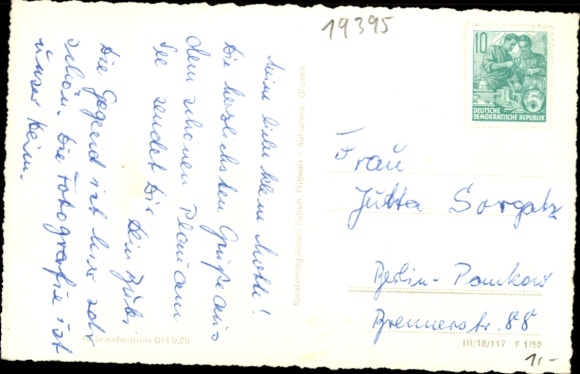 Meine liebe kleine Mutti!
Die herzlichsten Grüße aus
dem schönen Plau am
See sendet Dir
Dein Bubi
Die Gegend ist hier sehr
schön. Die Fotografie ist
unser Heim.
19395
10
DEUTSCHE
DEMOKRATISCHE REPUBLIK
5
Frau
Jutta Sorgatz
Berlin-Pankow
Brennerstr. 88
III/18/117 F 1/60
1,-
DM 0,20